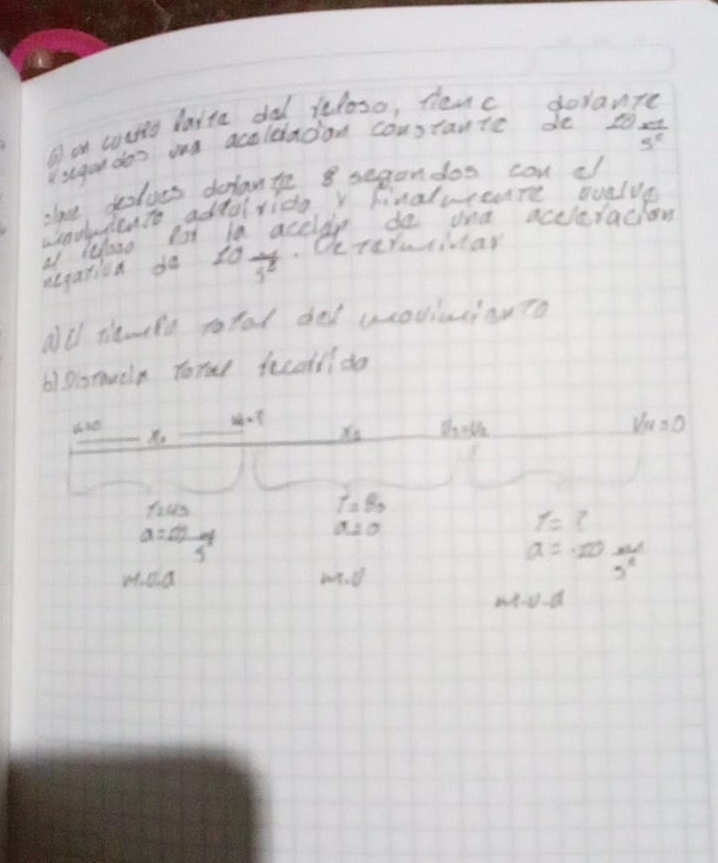 6) un cuerpo parte del reposo, tiene durante
4 segundos una aceleracion constante de 20 m/s²
sigue despues durante 8 segundos con el
movimiento adquirido y finalmente vuelve
al reposo por la acción de una aceleración
negativa de 10 m/s². Determinar
a) El tiempo total del movimiento
b) Distancia Total recorrido
V₁=0 X₁ V₂=? X₂ V₃=V₂ V₄=0
T=4s T=8s T=?
a=20 m/s² a=0 a=-10 m/s²
m.u.a m.u m.u.a